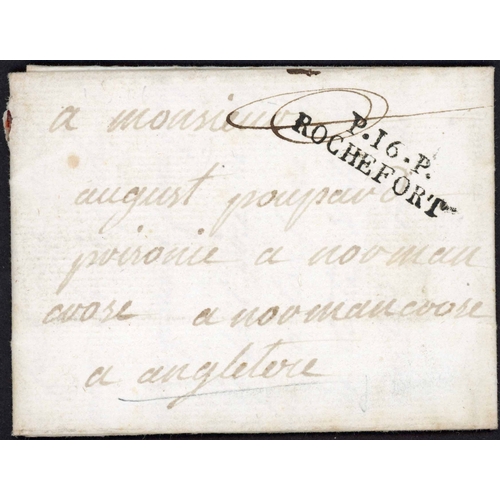 a monsieur
P.16.P.
ROCHEFORT
august poupard
poironie a norman
crose a normancrose
a angletere